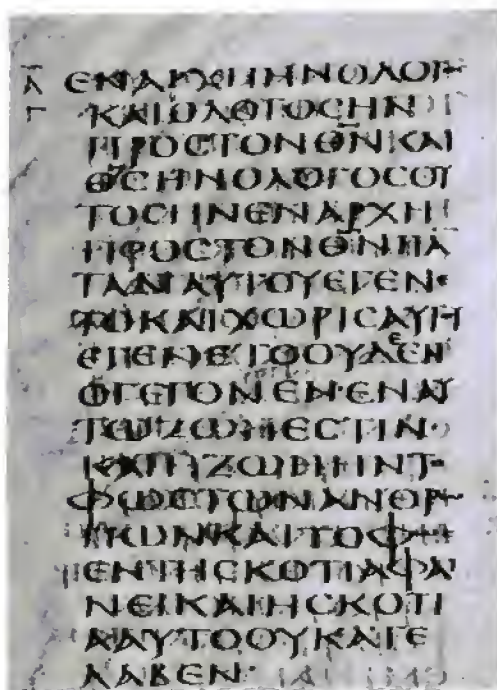 ΕΝΑΡΧΗΗΝΟΛΟΓ
ΚΑΙΟΛΟΓΟϹΗΝ
ΠΡΟϹΤΟΝΘ̅Ν̅ΚΑΙ
Θ̅Ϲ̅ΗΝΟΛΟΓΟϹΟΥ
ΤΟϹΗΝΕΝΑΡΧΗ
ΠΡΟϹΤΟΝΘ̅Ν̅ΠΑ
ΤΑΔΙΑΥΤΟΥΕΓΕΝΕ
ΤΟΚΑΙΧΩΡΙϹΑΥΤΥ
ΕΓΕΝΕΤΟΟΥΔΕΝ
ΟΓΕΓΟΝΕΝ·ΕΝΑΥ
ΤΩΖΩΗΕϹΤΙΝ
ΚΑΙΗΖΩΗΗΝΤΟ
ΦΩϹΤΩΝΑΝΘΡΩ
ΠΩΝΚΑΙΤΟΦΩϹ
ΕΝΤΗϹΚΟΤΙΑΦΑΙ
ΝΕΙΚΑΙΗϹΚΟΤΙ
ΑΑΥΤΟΟΥΚΑΤΕ
ΛΑΒΕΝ